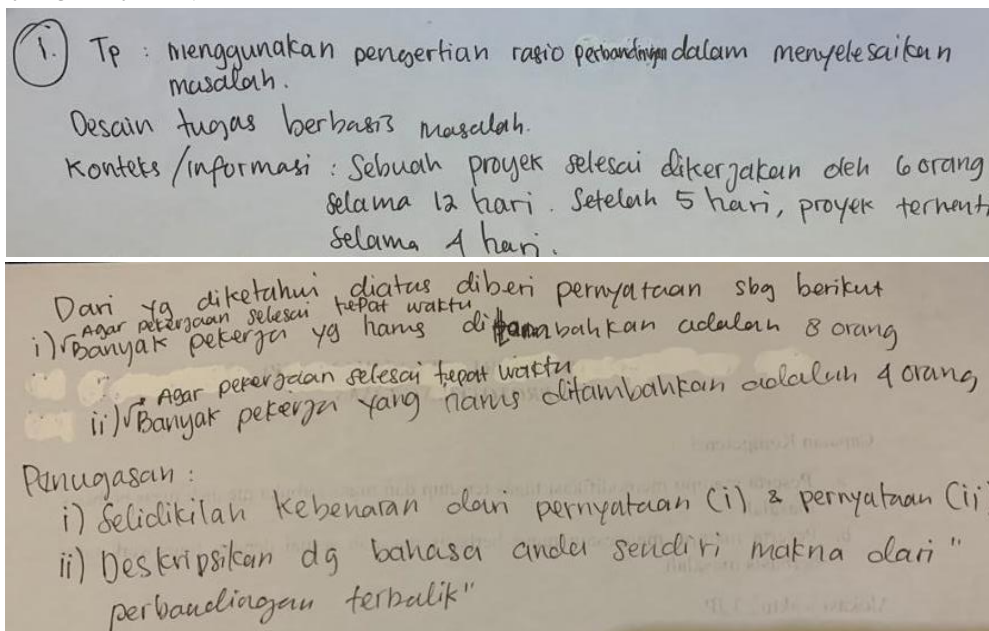 1. Tp : menggunakan pengertian rasio perbandingan dalam menyelesaikan
masalah.
Desain tugas berbasis masalah.
Konteks /informasi : Sebuah proyek selesai dikerjakan oleh 6 orang
selama 12 hari. Setelah 5 hari, proyek terhenti
selama 4 hari.
Dari yg diketahui diatas diberi pernyataan sbg berikut
Agar pekerjaan selesai tepat waktu
i) √Banyak pekerja yg harus ditambahkan adalah 8 orang
Agar pekerjaan selesai tepat waktu
ii) √Banyak pekerja yang harus ditambahkan adalah 4 orang
Penugasan :
i) Selidikilah kebenaran dari pernyataan (i) & pernyataan (ii)
ii) Deskripsikan dg bahasa anda sendiri makna dari "
perbandingan terbalik"